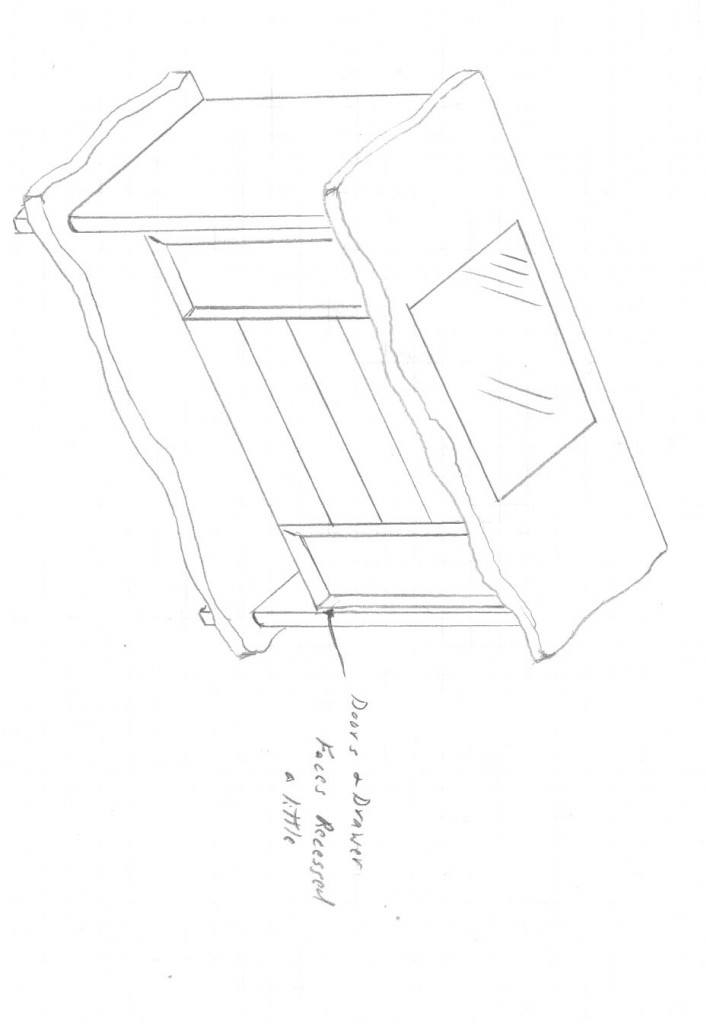 Doors & Drawer
Faces Recessed
a little